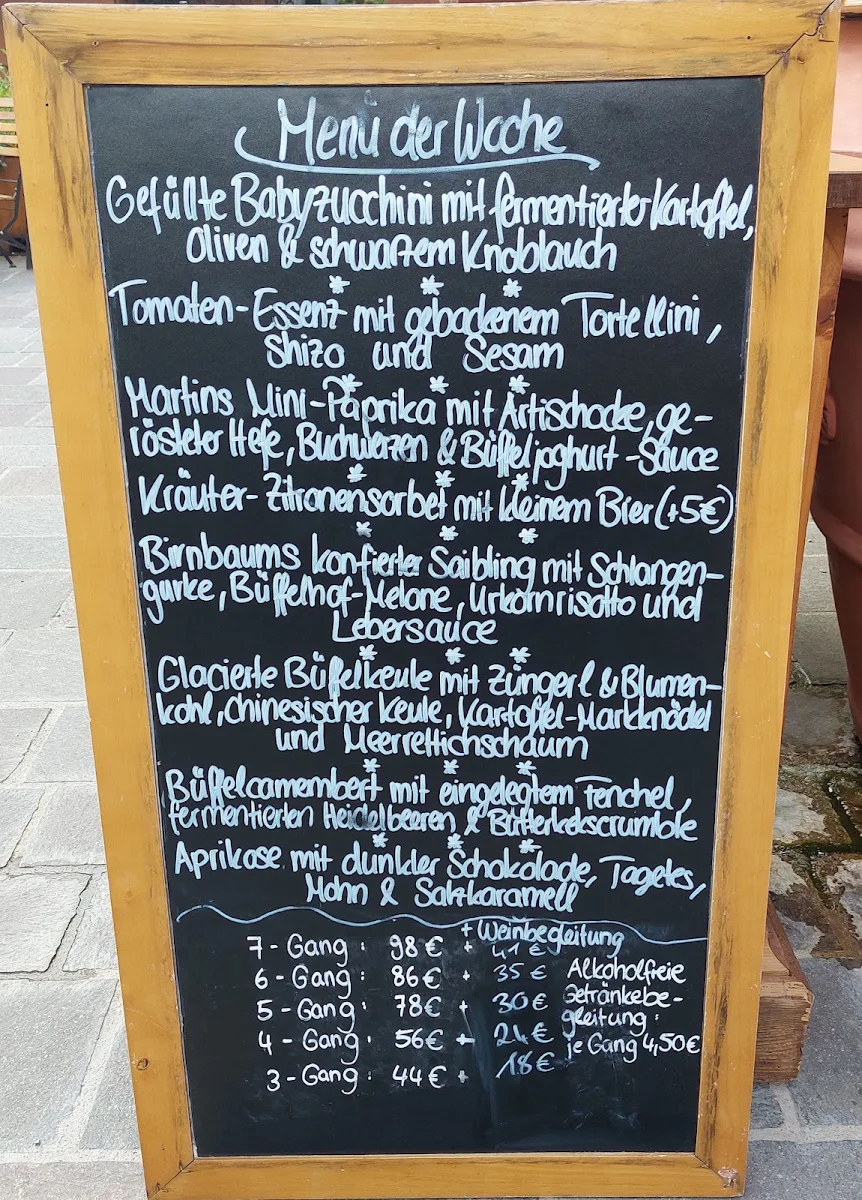 Menü der Woche
Gefüllte Babyzucchini mit fermentierter Kartoffel,
Oliven & schwarzem Knoblauch
* * *
Tomaten-Essenz mit gebackenem Tortellini,
Shizo und Sesam
* * *
Martins Mini-Paprika mit Artischocke, ge-
rösteter Hefe, Buchweizen & Büffeljoghurt-Sauce
* * *
Kräuter-Zitronensorbet mit kleinem Bier (+5€)
* * *
Birnbaums konfierter Saibling mit Schlangen-
gurke, Büffelhof-Melone, Urkornrisotto und
Lebersauce
* * *
Glacierte Büffelkeule mit Züngerl & Blumen-
kohl, chinesischer Keule, Kartoffel-Markknödel
und Meerrettichschaum
* * *
Büffelcamembert mit eingelegtem Fenchel,
fermentierten Heidelbeeren & Butterkekscrumble
* * *
Aprikose mit dunkler Schokolade, Tagetes,
Mohn & Salzkaramell
+ Weinbegleitung
7-Gang: 98€ + 41€
6-Gang: 86€ + 35€
5-Gang: 78€ + 30€
4-Gang: 56€ + 24€
3-Gang: 44€ + 18€
Alkoholfreie
Getränkebe-
gleitung:
je Gang 4,50€